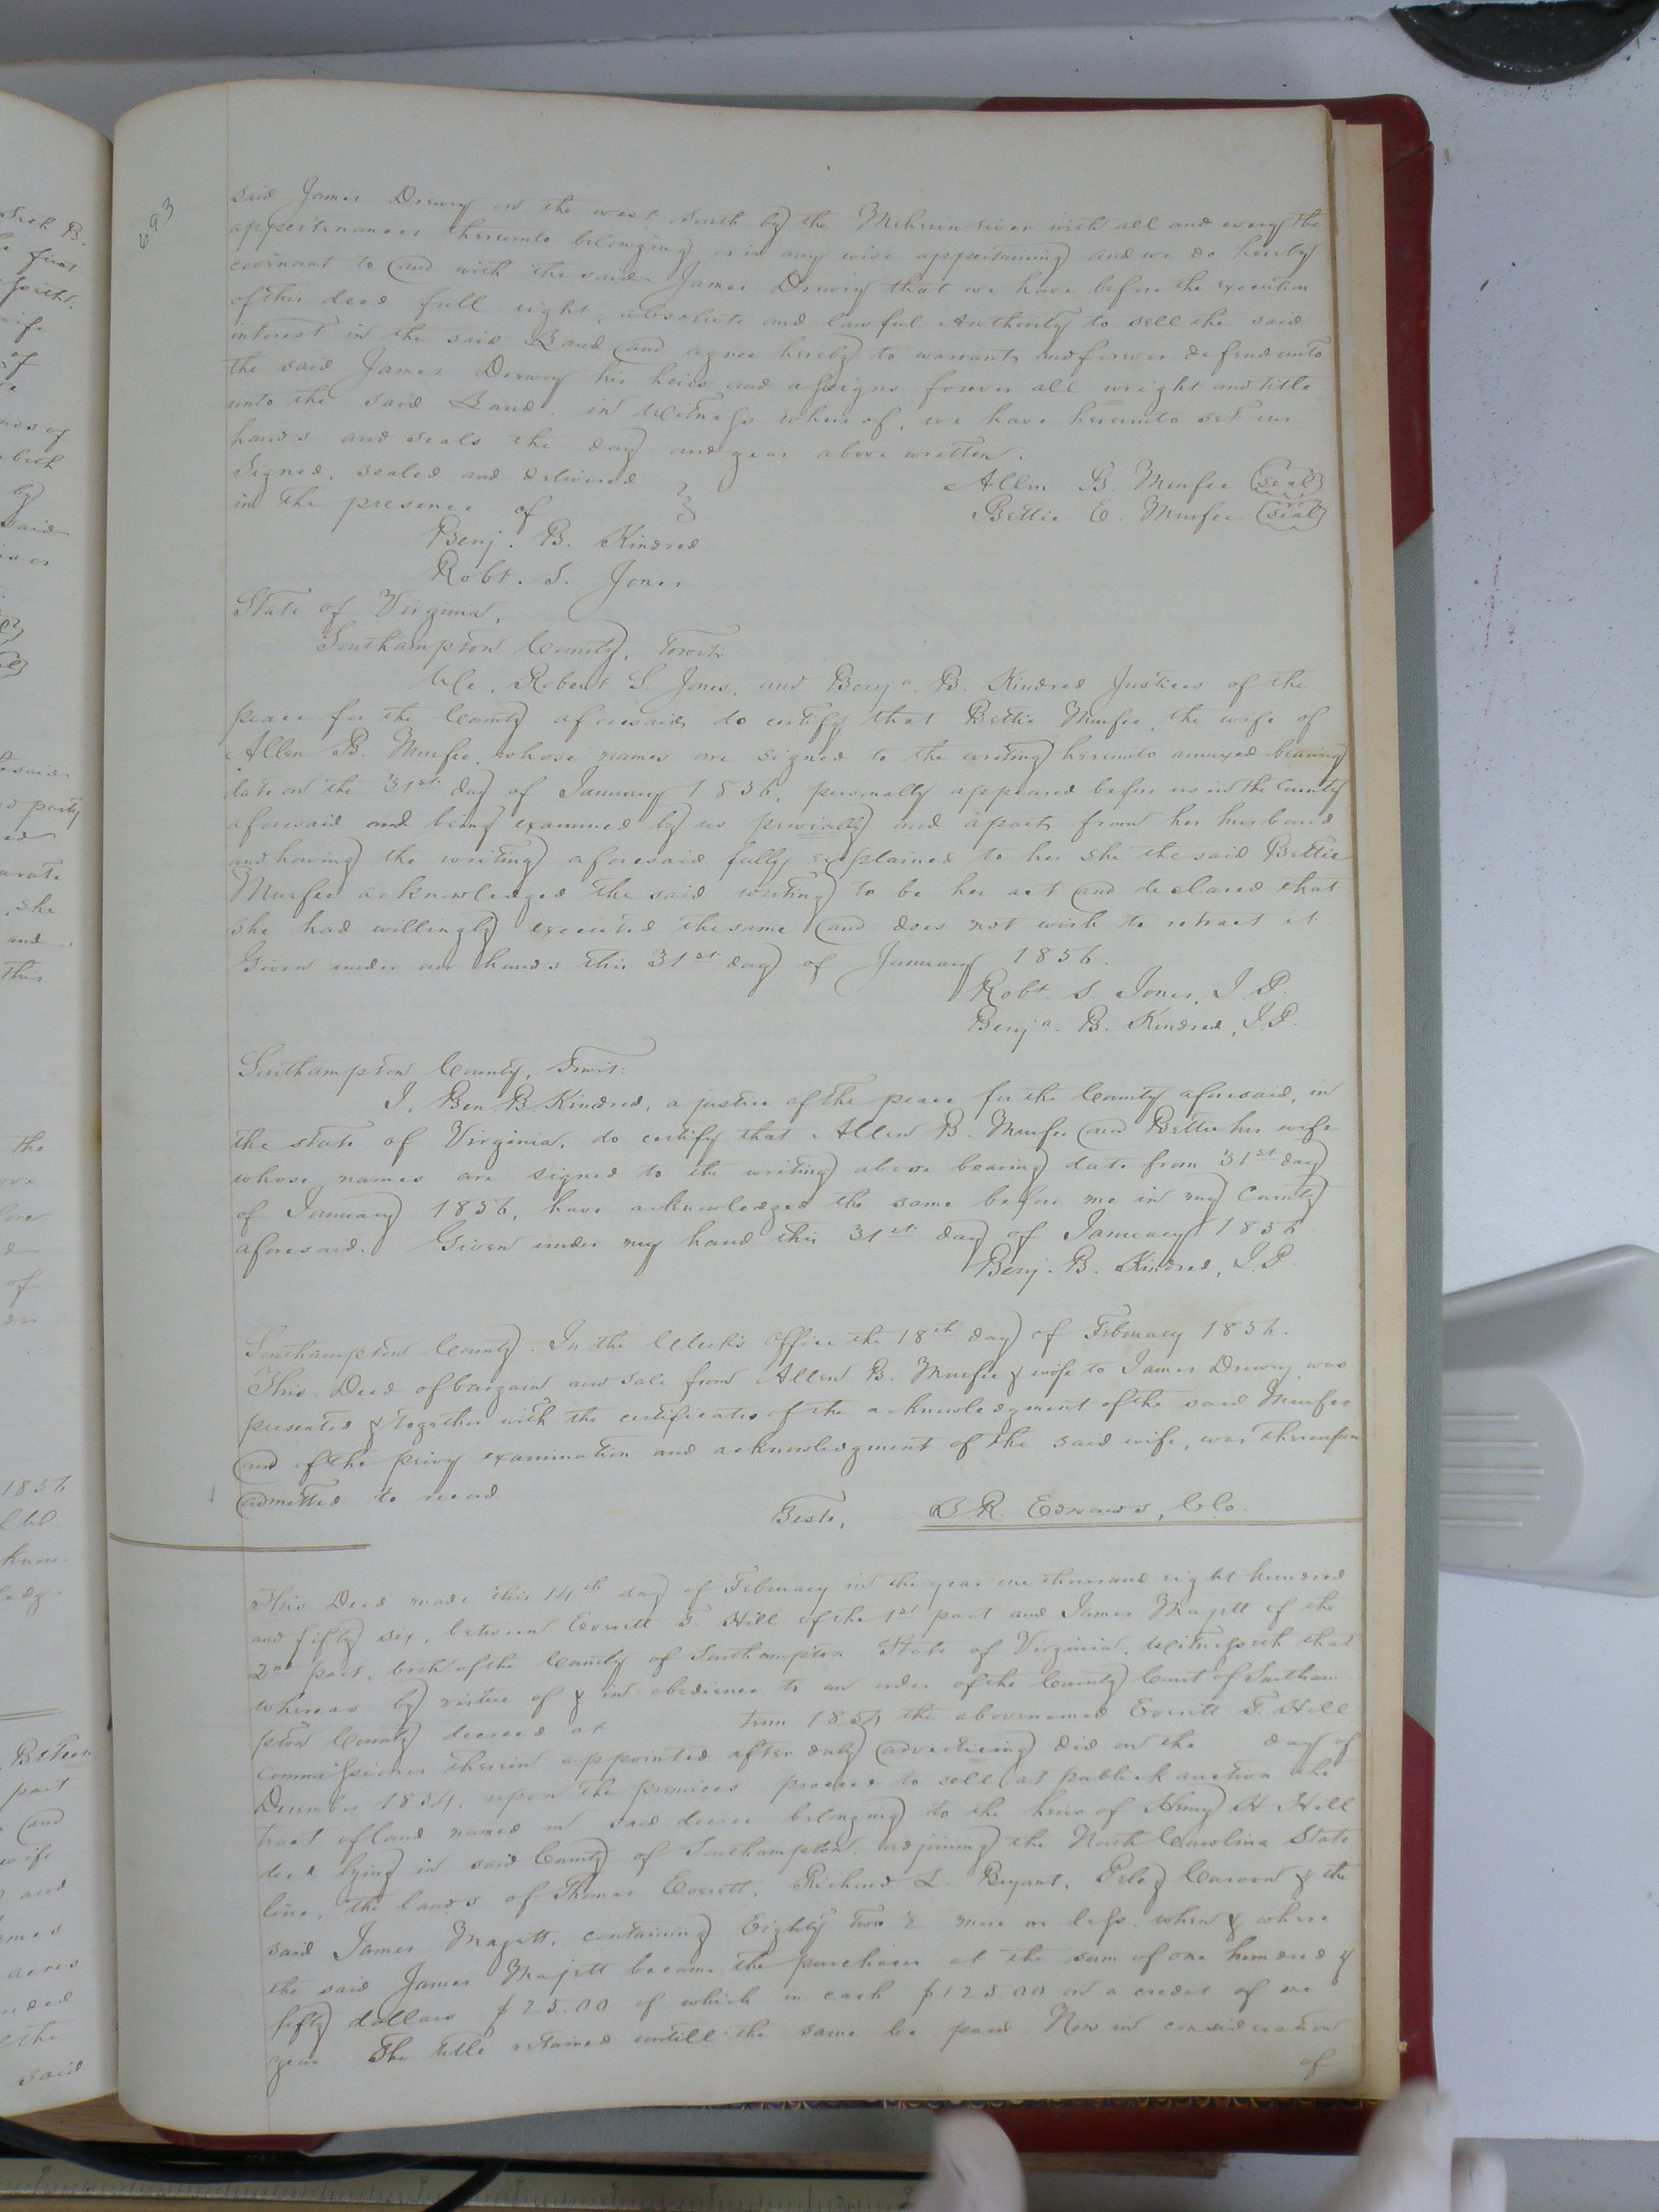 693
said James Drewry on the west South by the Meherrin river with all and every the
appertenances hereunto belonging or in any wise appertaining and we do hereby
covenant to and with the said James Drewry that we have before the execution
of this deed full right, absolute and lawful Authority to sell the said
interest in the said Land and agree hereby to warrant and forever defend unto
the said James Drewry his heirs and assigns forever all wright and title
unto the said Land. in Witness whereof, we have hereunto set our
hands and seals the day and year above written.
Signed, sealed and delivered Allen B. Murfee (seal)
in the presence of Bettie E. Murfee (seal)
Benj. B. Kindred
Robt. S. Jones
State of Virginia,
Southampton County, Towit:
We, Robert S. Jones, and Benja. B. Kindred Justices of the
peace for the County aforesaid, do certify, that Bettie Murfee, the wife of
Allen B. Murfee, whose names are signed to the writing hereunto annexed bearing
date on the 31st day of January 1856, personally appeared before us in the County
aforesaid and being examined by us privially and apart from her husband
and having the writing aforesaid fully explained to her she the said Bettie
Murfee acknowledged the said writing to be her act and declared that
she had willingly executed the same and does not wish to retract it
Given under our hands this 31st day of January 1856.
Robt. S. Jones, J.P.
Benja. B. Kindred, J.P.
Southampton County, Towit:
I, Ben B Kindred, a justice of the peace for the County aforesaid, in
the state of Virginia, do certify that Allen B. Murfee and Bettie his wife
whose names are signed to the writing above bearing date from 31st day
of January 1856, have acknowledged the same before me in my County
aforesaid. Given under my hand this 31st day of January 1856
Benj. B. Kindred, J.P.
Southampton County. In the Clerk's office the 18th day of February 1856.
This Deed of bargain and sale from Allen B. Murfee & wife to James Drewry was
presented & together with the certificates of the acknowledgment of the said Murfee
and of the privy examination and acknowledgment of the said wife, was thereupon
admitted to record
Teste, L R. Edwards, C.C.
This Deed made this 14th day of February in the year one thousand eight hundred
and fifty six, between Everett T. Hill of the 1st part and James Majett of the
2nd part, both of the County of Southampton State of Virginia, Witnesseth that
whereas by virtue of & in obedience to an order of the County Court of Southam
pton County decreed at term 1854 the abovenamed Everett T. Hill
commissioner therein appointed after duly advertising did on the day of
December 1854, upon the premises proceed to sell at publick auction the
tract of land named in said decree belonging to the heirs of Henry H. Hill
decd lying in said County of Southampton, adjoining the North Carolina State
line, the lands of Thomas Everett, Richard L. Bryant, & the
said James Majett, containing Eighty two ½ more or less. when & where
the said James Majett became the purchaser at the sum of one hundred &
fifty dollars $25.00 of which in cash $125.00 on a credit of one
year The title retained untill the same be paid. Now in consideration
of